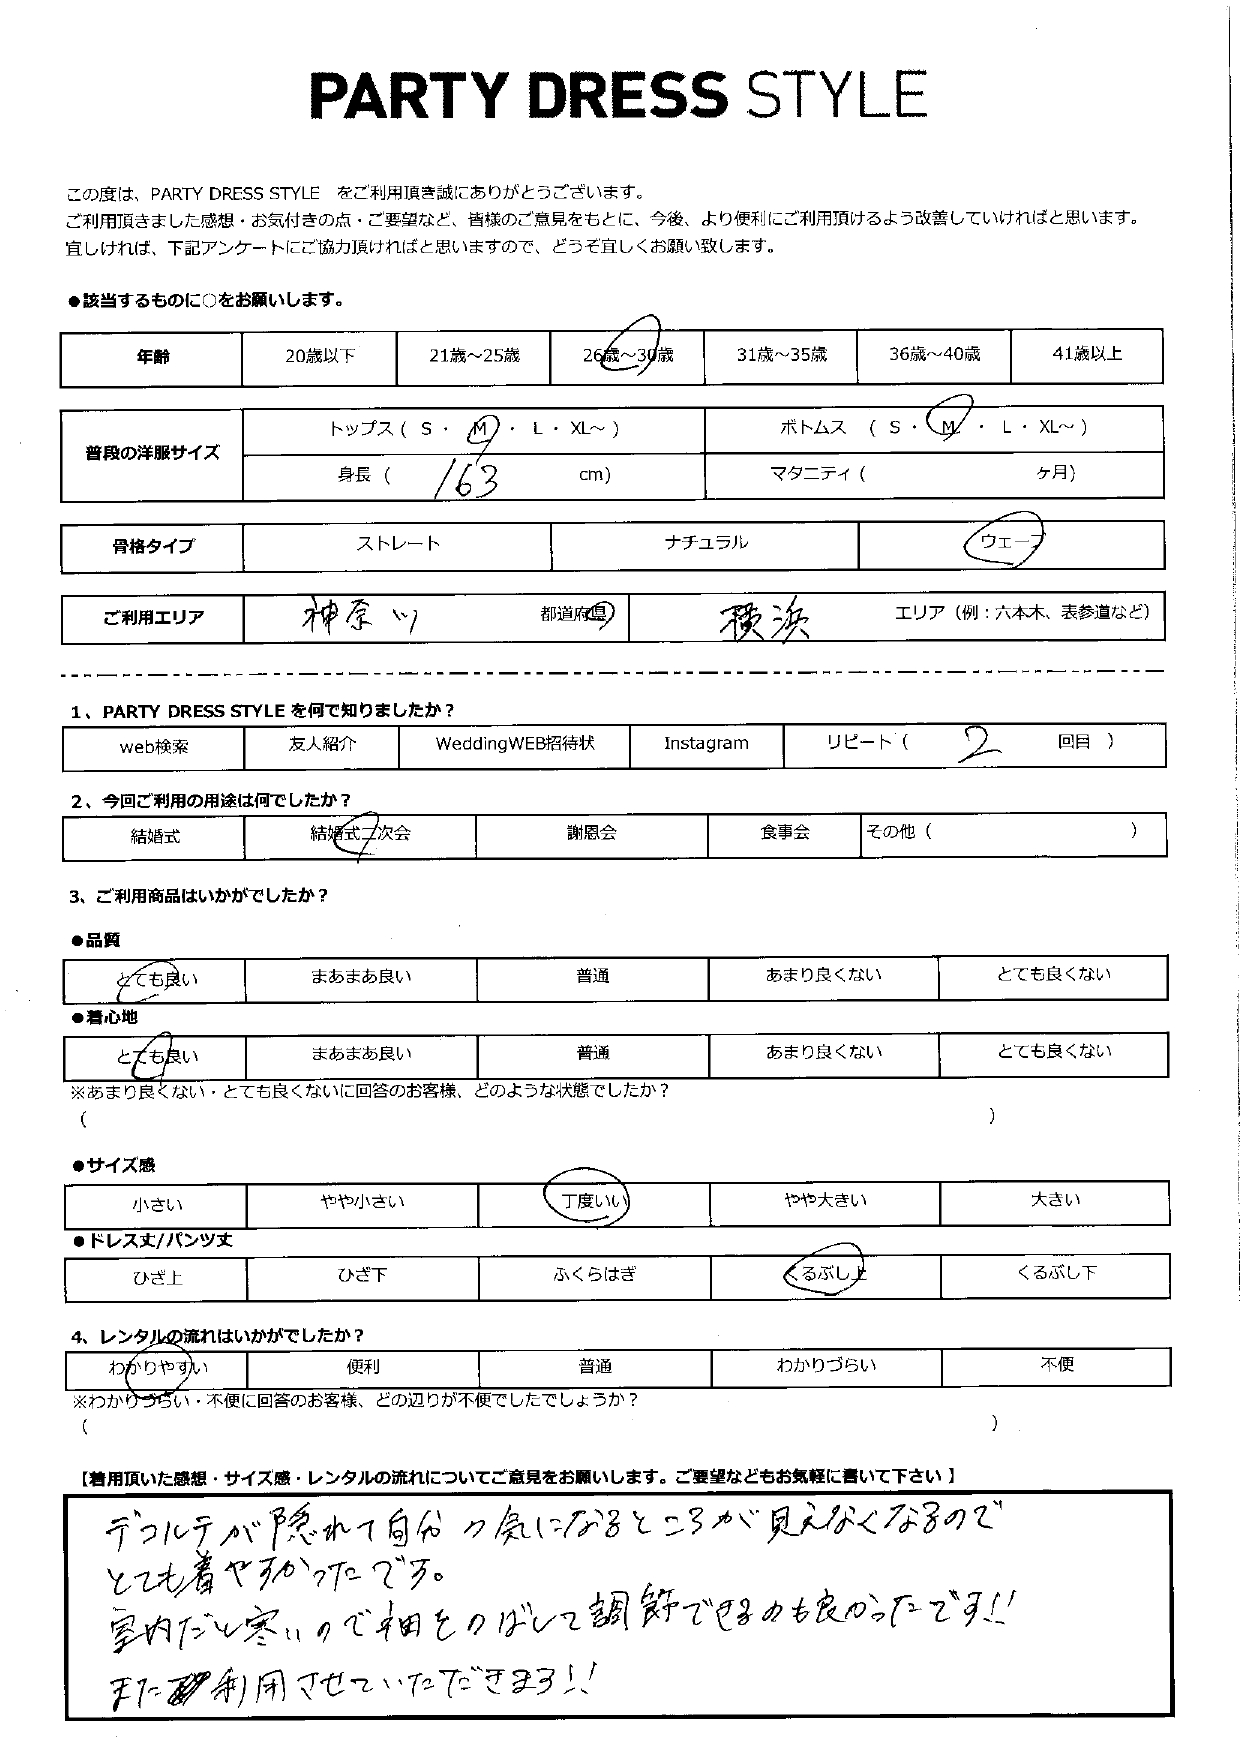 PARTY DRESS STYLE
この度は、PARTY DRESS STYLE をご利用頂き誠にありがとうございます。
ご利用頂きました感想・お気付きの点・ご要望など、皆様のご意見をもとに、今後、より便利にご利用頂けるよう改善していければと思います。
宜しければ、下記アンケートにご協力頂ければと思いますので、どうぞ宜しくお願い致します。
●該当するものに○をお願いします。
年齢 20歳以下 21歳～25歳 26歳～30歳 31歳～35歳 36歳～40歳 41歳以上
普段の洋服サイズ トップス ( S ・ M ・ L ・ XL～ ) ボトムス ( S ・ M ・ L ・ XL～ )
身長 ( 163 cm) マタニティ ( ヶ月)
骨格タイプ ストレート ナチュラル ウェーブ
ご利用エリア 神奈川 都道府県 横浜 エリア（例：六本木、表参道など）
1、PARTY DRESS STYLE を何で知りましたか？
web検索 友人紹介 WeddingWEB招待状 Instagram リピート ( 2 回目 )
2、今回ご利用の用途は何でしたか？
結婚式 結婚式二次会 謝恩会 食事会 その他 ( )
3、ご利用商品はいかがでしたか？
●品質
とても良い まあまあ良い 普通 あまり良くない とても良くない
●着心地
とても良い まあまあ良い 普通 あまり良くない とても良くない
※あまり良くない・とても良くないに回答のお客様、どのような状態でしたか？
( )
●サイズ感
小さい やや小さい 丁度いい やや大きい 大きい
●ドレス丈/パンツ丈
ひざ上 ひざ下 ふくらはぎ くるぶし上 くるぶし下
4、レンタルの流れはいかがでしたか？
わかりやすい 便利 普通 わかりづらい 不便
※わかりづらい・不便に回答のお客様、どの辺りが不便でしたでしょうか？
( )
【着用頂いた感想・サイズ感・レンタルの流れについてご意見をお願いします。ご要望などもお気軽に書いて下さい】
デコルテが隠れて自分の気になるところが見えなくなるので
とても着やすかったです。
室内だと寒いので袖をのばして調節できるのも良かったです!!
また利用させていただきます!!